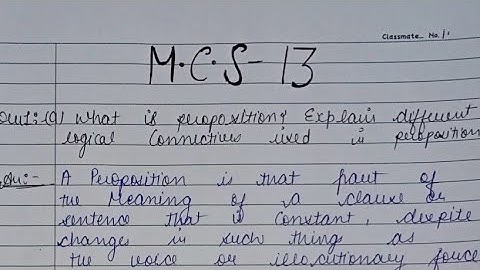 Classmate No. 1
M.C.S-13
Que1:-(a) What is peroposition? Explain different
logical Connectives used in peroposition
Ans:- A Peroposition is that part of
the Meaning of a clause or
sentence that is Constant, despite
changes in such thing as
the voice or illocutionary force